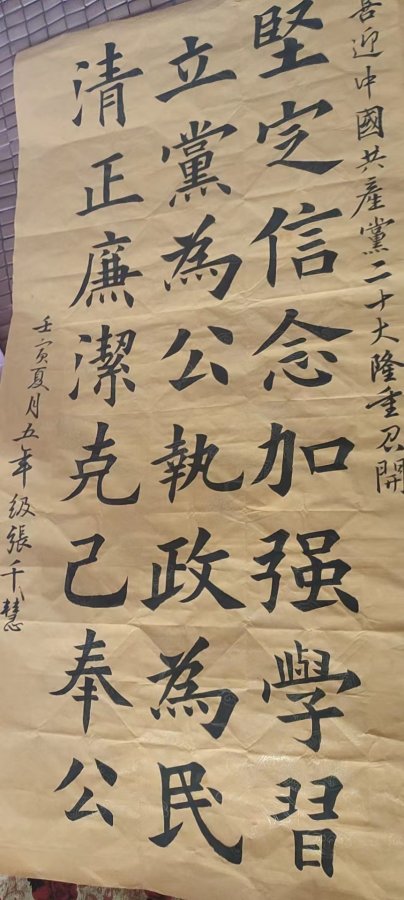 喜迎中國共產黨二十大隆重召開
堅定信念加强學習
立黨為公執政為民
清正廉潔克己奉公
壬寅夏月五年级張千慧